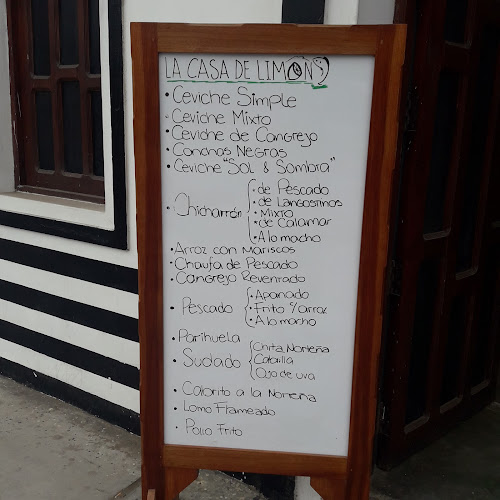 LA CASA DE LIMON
• Ceviche Simple
• Ceviche Mixto
• Ceviche de Cangrejo
• Conchas Negras
• Ceviche "Sol & Sombra"
• Chicharrón
• de Pescado
• de Langostinos
• Mixto
• de Calamar
• A lo macho
• Arroz con Mariscos
• Chaufa de Pescado
• Cangrejo Reventado
• Pescado
• Apanado
• Frito c/arroz
• A lo macho
• Parihuela
• Sudado
Chita Norteña
Cabrilla
Ojo de uva
• Cabrito a la Norteña
• Lomo Flameado
• Pollo Frito